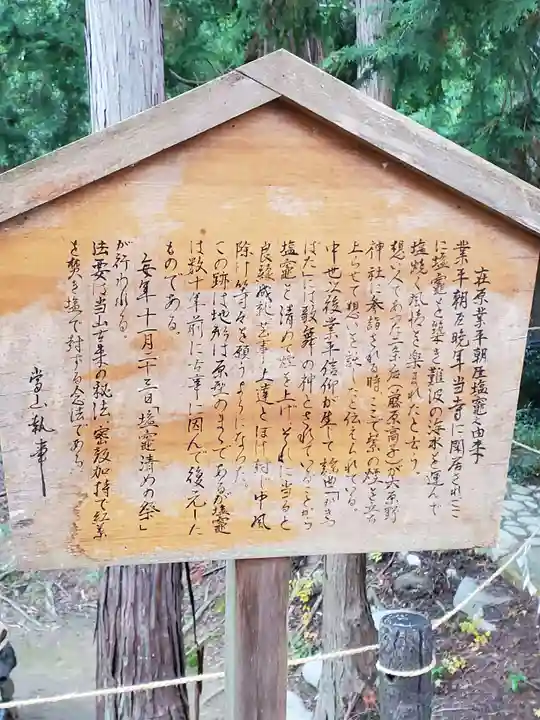 在原業平朝臣塩竈之由来
業平朝臣晩年当寺に閑居されここ
に塩竈を築き難波の海水を運んで
塩焼く風情を楽まれたと云う。
想い人であった二条后(藤原高子)が大原野
神社に参詣される時ここで紫の煙を立ち
上らせて想いを託したと伝えられている。
中世以後業平信仰が生じ謡曲「かきつ
ばた」には歌舞の神とされていることから
塩竈を清めて煙を上げそれに当ると
良縁成就芸事上達とぼけ封じ中風
除け等々を願うようになった。
この跡は地形は原型のままであるが塩竈
は数十年前に古事に因んで復元した
ものである。
毎年十一月二十三日「塩竈清めの祭」
が行われる
法要は当山古来の秘法、密教加持で紅葉
を焚き塩で封ずる念法である。
当山執事